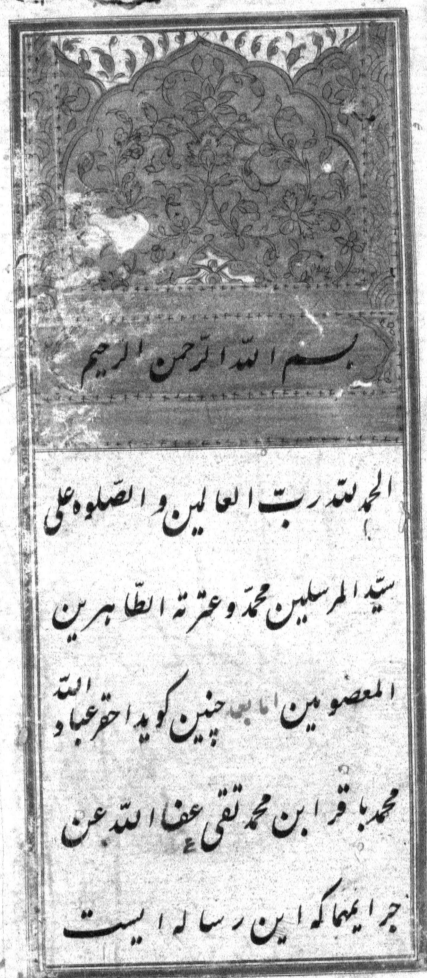 بسم الله الرحمن الرحیم
الحمد لله ربّ العالمین و الصّلوه علی
سیّد المرسلین محمّد و عترته الطّاهرین
المعصومین اما بعد چنین کوید احقر عباد الله
محمد باقر ابن محمد تقی عفا الله عن
جرایمهما که این رساله ایست